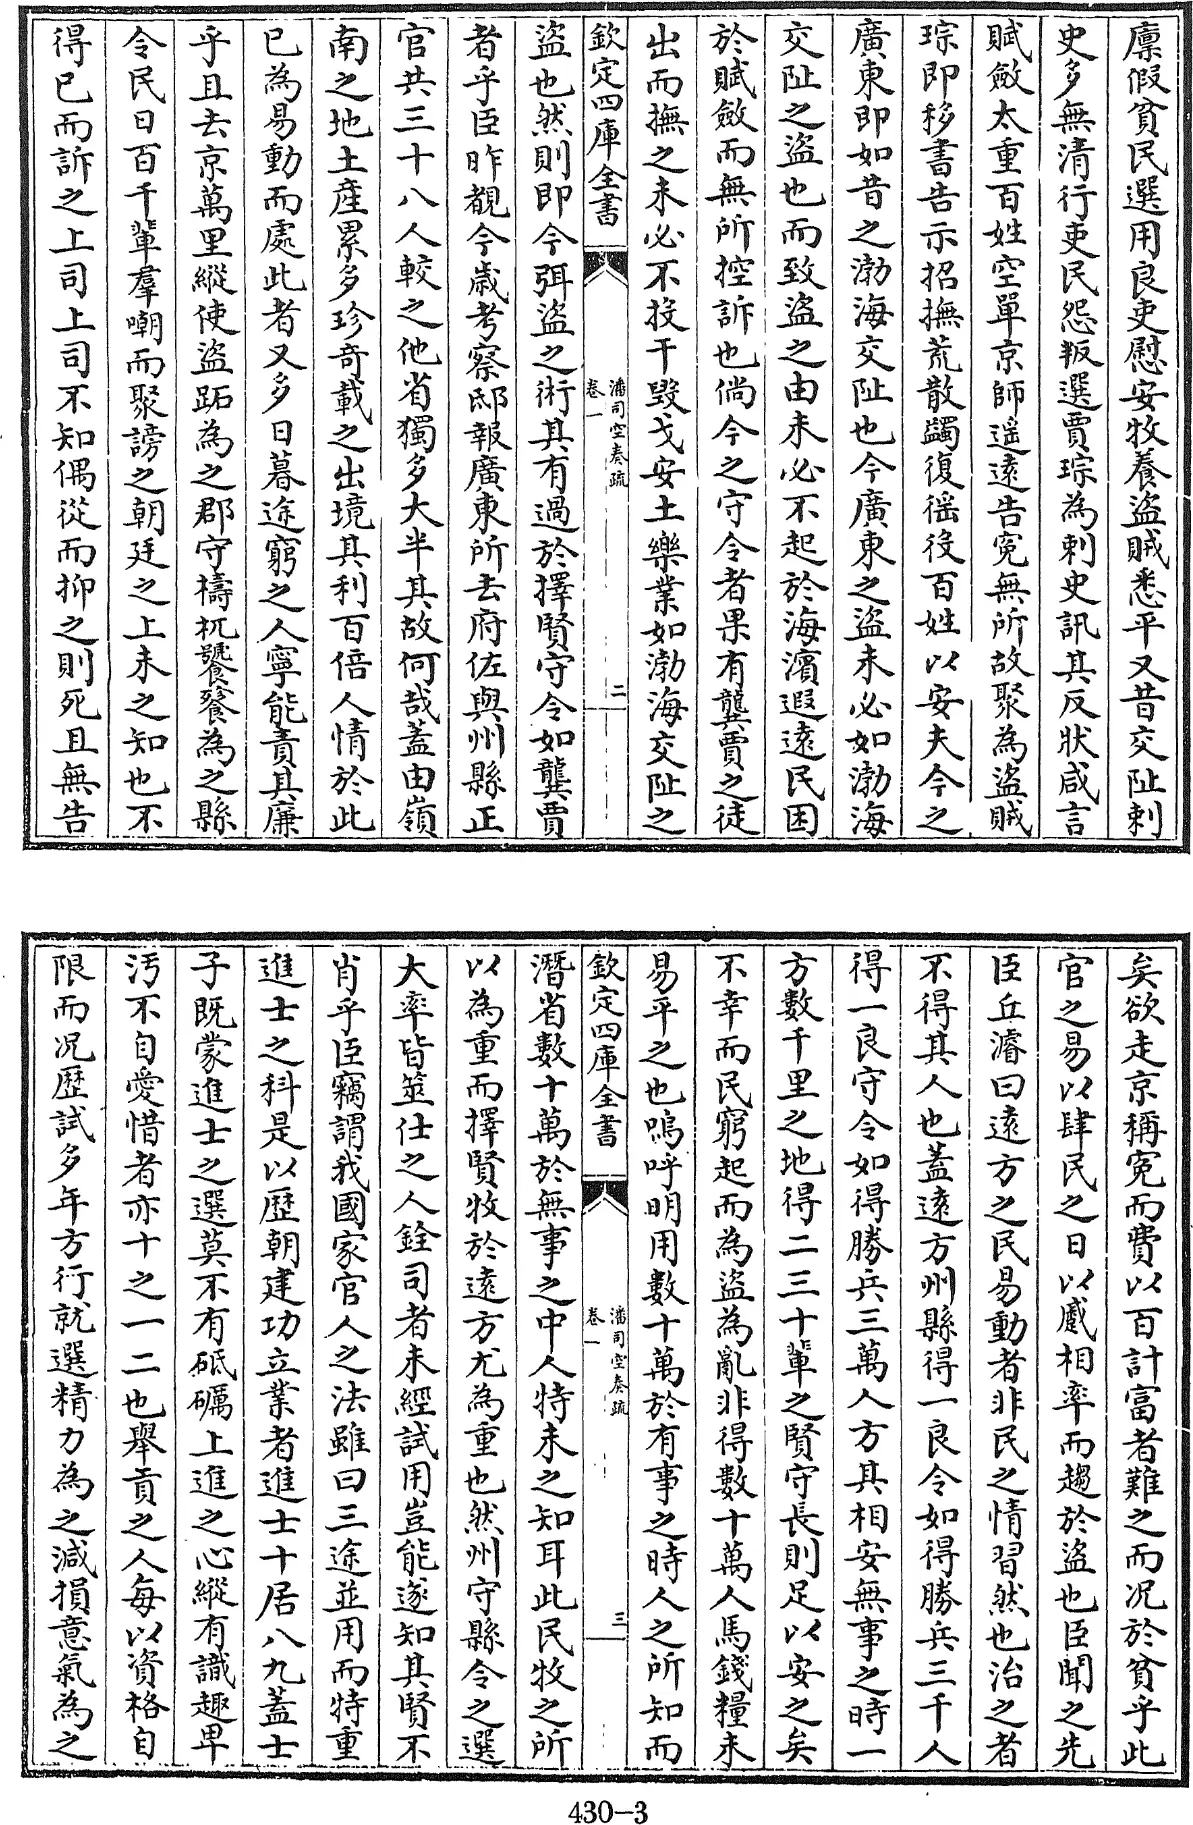 廪假貧民選用良吏慰安牧養盜賊悉平又昔交阯刺
史多無清行吏民怨叛選賈琮為刺史訊其反狀咸言
賦斂太重百姓空單京師遥遠告寃無所故聚為盜賊
琮即移書告示招撫荒散蠲復徭役百姓以安夫今之
廣東即如昔之渤海交阯也今廣東之盜未必如渤海
交阯之盜也而致盜之由未必不起於海濱遐遠民困
於賦斂而無所控訴也倘今之守令者果有龔賈之徒
出而撫之未必不投干毀戈安土樂業如渤海交阯之
欽定四庫全書
潘司空奏疏
卷一
二
盜也然則即今弭盜之術其有過於擇賢守令如龔賈
者乎臣昨覩今歲考察邸報廣東所去府佐與州縣正
官共三十八人較之他省獨多大半其故何哉蓋由嶺
南之地土産累多珍奇載之出境其利百倍人情於此
已為易動而處此者又多日暮途窮之人寧能責其廉
乎且去京萬里縱使盜跖為之郡守檮杌饕餮為之縣
令民日百千輩羣嘲而聚謗之朝廷之上未之知也不
得已而訴之上司上司不知偶從而抑之則死且無告
矣欲走京稱寃而費以百計富者難之而况於貧乎此
官之易以肆民之日以蹙相率而趨於盜也臣聞之先
臣丘濬曰遠方之民易動者非民之情習然也治之者
不得其人也蓋遠方州縣得一良令如得勝兵三千人
得一良守令如得勝兵三萬人方其相安無事之時一
方數千里之地得二三十輩之賢守長則足以安之矣
不幸而民窮起而為盜為亂非得數十萬人馬錢糧未
易平之也嗚呼明用數十萬於有事之時人之所知而
欽定四庫全書
潘司空奏疏
卷一
三
潛省數十萬於無事之中人特未之知耳此民牧之所
以為重而擇賢牧於遠方尤為重也然州守縣令之選
大率皆筮仕之人銓司者未經試用豈能逐知其賢不
肖乎臣竊謂我國家官人之法雖曰三途並用而特重
進士之科是以歴朝建功立業者進士十居八九蓋士
子既蒙進士之選莫不有砥礪上進之心縱有識趣卑
汚不自愛惜者亦十之一二也舉貢之人每以資格自
限而况歴試多年方行就選精力為之減損意氣為之
430-3